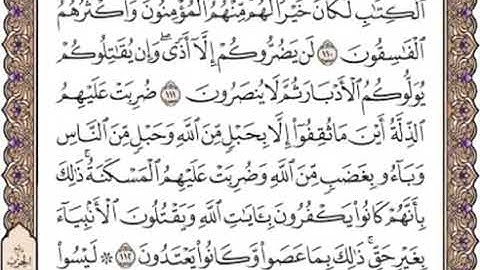 ٱلْكِتَٰبِ لَكَانَ خَيْرًا لَّهُم مِّنْهُمُ ٱلْمُؤْمِنُونَ وَأَكْثَرُهُمُ
ٱلْفَٰسِقُونَ ١١٠ لَن يَضُرُّوكُمْ إِلَّآ أَذًى ۖ وَإِن يُقَٰتِلُوكُمْ
يُوَلُّوكُمُ ٱلْأَدْبَارَ ثُمَّ لَا يُنصَرُونَ ١١١ ضُرِبَتْ عَلَيْهِمُ
ٱلذِّلَّةُ أَيْنَ مَا ثُقِفُوٓا۟ إِلَّا بِحَبْلٍ مِّنَ ٱللَّهِ وَحَبْلٍ مِّنَ ٱلنَّاسِ
وَبَآءُو بِغَضَبٍ مِّنَ ٱللَّهِ وَضُرِبَتْ عَلَيْهِمُ ٱلْمَسْكَنَةُ ۚ ذَٰلِكَ
بِأَنَّهُمْ كَانُوا۟ يَكْفُرُونَ بِـَٔايَٰتِ ٱللَّهِ وَيَقْتُلُونَ ٱلْأَنۢبِيَآءَ
بِغَيْرِ حَقٍّ ۚ ذَٰلِكَ بِمَا عَصَوا۟ وَّكَانُوا۟ يَعْتَدُونَ ١١٢ ۞ لَيْسُوا۟